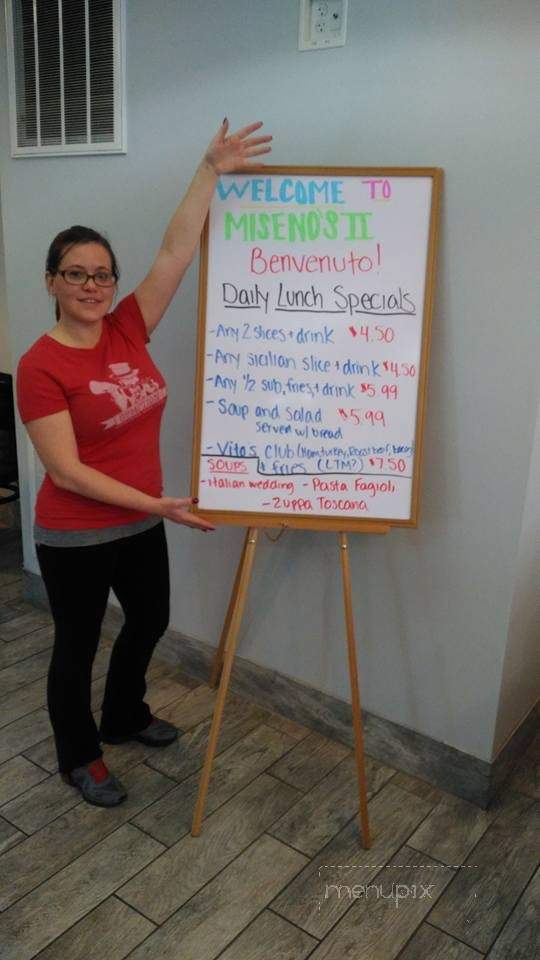 WELCOME TO
MISENO'S II
Benvenuto!
Daily Lunch Specials
- Any 2 slices + drink $4.50
- Any sicilian slice + drink $4.50
- Any 1/2 sub, fries, + drink $5.99
- Soup and Salad $5.99
served w/ bread
- Vito's Club (Ham, turkey, Roast beef, bacon)
+ fries (LTM?) $7.50
SOUPS
- italian wedding - Pasta Fagioli
- Zuppa Toscana
menupix